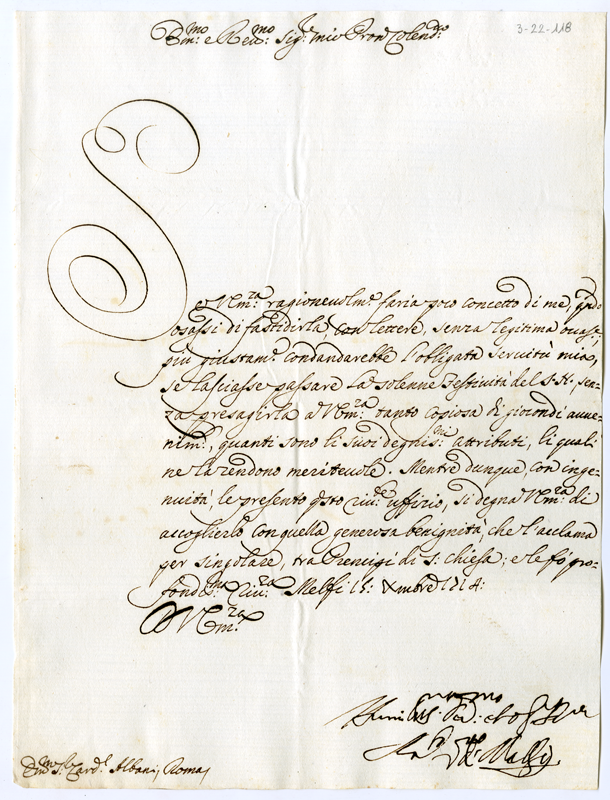 3-22-118
Em.mo e Reu.mo Sig.re mio Pron Colend.mo
Se V Em.za ragioneuolm.te faria poco concetto di me, q.ndo
osassi di fastidirla, con lettere, senza legitima occas.e,
più giustam.te condandarebbe l'obligata seruitù mia,
se lasciasse passare la solenne festiuità del S. N., sen-
za presagirla a V Em.za tanto copiosa di giocondi auue-
nim.ti, quanti sono li suoi degnis.mi attributi, li quali
ne la rendono meriteuole. Mentre dunque, con inge-
nuità, le presento q.sto riu.te uffizio, si degna V Em.za di
accoglierlo con quella generosa benignità, che l'acclama
per singolare, tra Prencipi di S. Chiesa; e le fò pro-
fondis.ma riu.za Melfi 15: Xmbre 1714:
D V Em.za
Em.mo S.r Card.l Albani, Roma